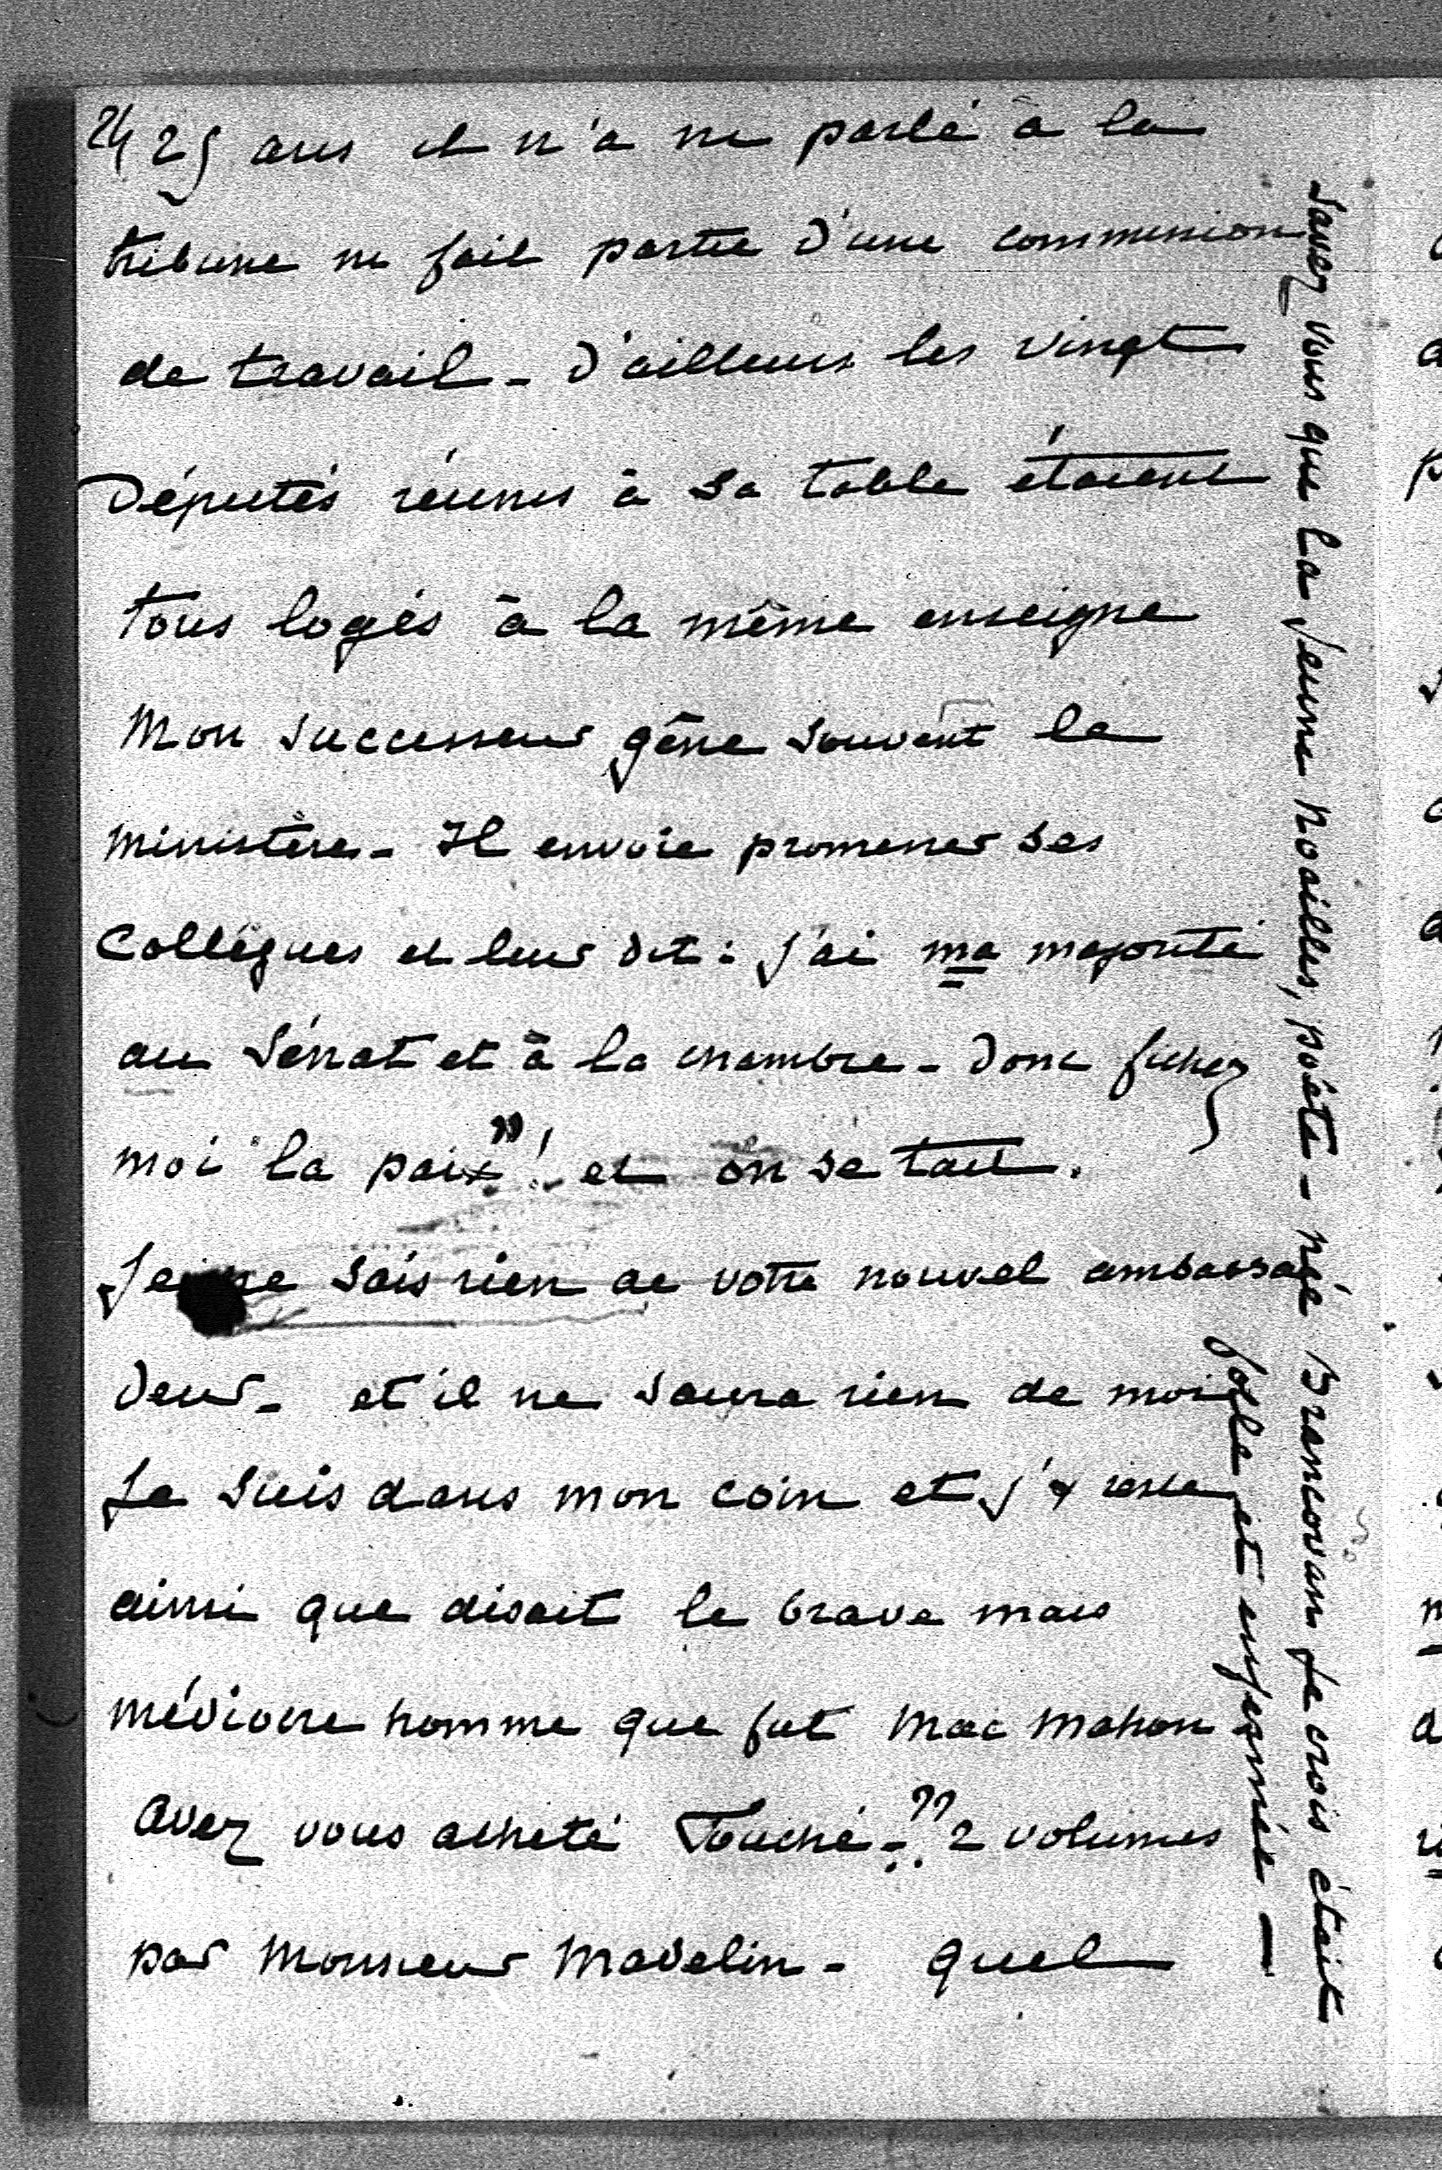 24 25 ans il n'a ni parlé à la
tribune ni fait partie d'une commission
de travail - D'ailleurs les vingt
Députés réunis à sa table étaient
tous logés à la même enseigne
Mon successeur gêne souvent le
ministère - Il envoie promener ses
Collègues et leur dit : J'ai ma majorité
au Sénat et à la chambre - Donc fichez
moi la paix" ! et on se tait.
Je ne sais rien de votre nouvel ambassa
deur - et il ne saura rien de moi
Je suis dans mon coin et j'y reste
ainsi que disait le brave mais
médiocre homme que fut Mac Mahon
Avez vous acheté Fouché - ?? 2 volumes
par Monsieur Madelin - quel
Savez vous que la Jeune Noailles, poète - née Brancovan Je crois était
folle et enfermée -